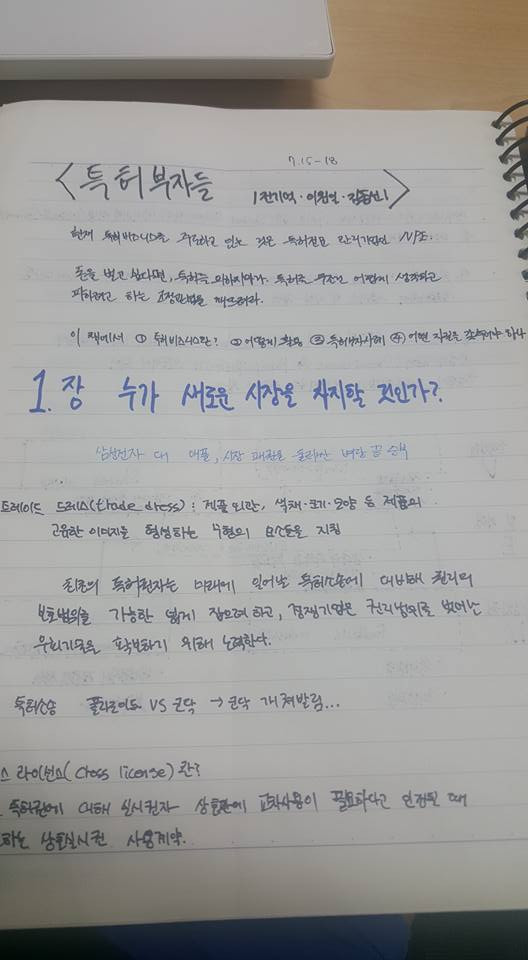 7.15-18
<특허부자들 | 전기억·이원일·김종선>
현재 특허비즈니스를 주도하고 있는 것은 특허전문 관리기업인 NPE.
돈을 벌고 싶다면, 특허를 피하지마라. 특허를 무조건 어렵게 생각하고
피하려고 하는 고정관념을 깨뜨려라.
이 책에서 ① 특허비즈니스란? ② 어떻게 활용 ③ 특허부자사례 ④ 어떤 자질을 갖추어야 하나
1. 장 누가 새로운 시장을 차지할 것인가?
삼성전자 대 애플, 시장 패권을 둘러싼 벼랑 끝 승부
트레이드 드레스(trade dress) : 제품 외관, 색채·크기·모양 등 제품의
고유한 이미지를 형성하는 무형의 요소들을 지칭
최초의 특허권자는 미래에 일어날 특허소송에 대비해 권리의
보호범위를 가능한 넓게 잡으려 하고, 경쟁기업은 권리범위를 벗어난
우회기술을 확보하기 위해 노력한다.
특허소송 폴라로이드 VS 코닥 → 코닥 개쳐발림...
스 라이선스(cross license)란?
특허권에 대해 실시권자 상호간에 교차사용이 필요하다고 인정될 때
하는 상호실시권 사용계약.